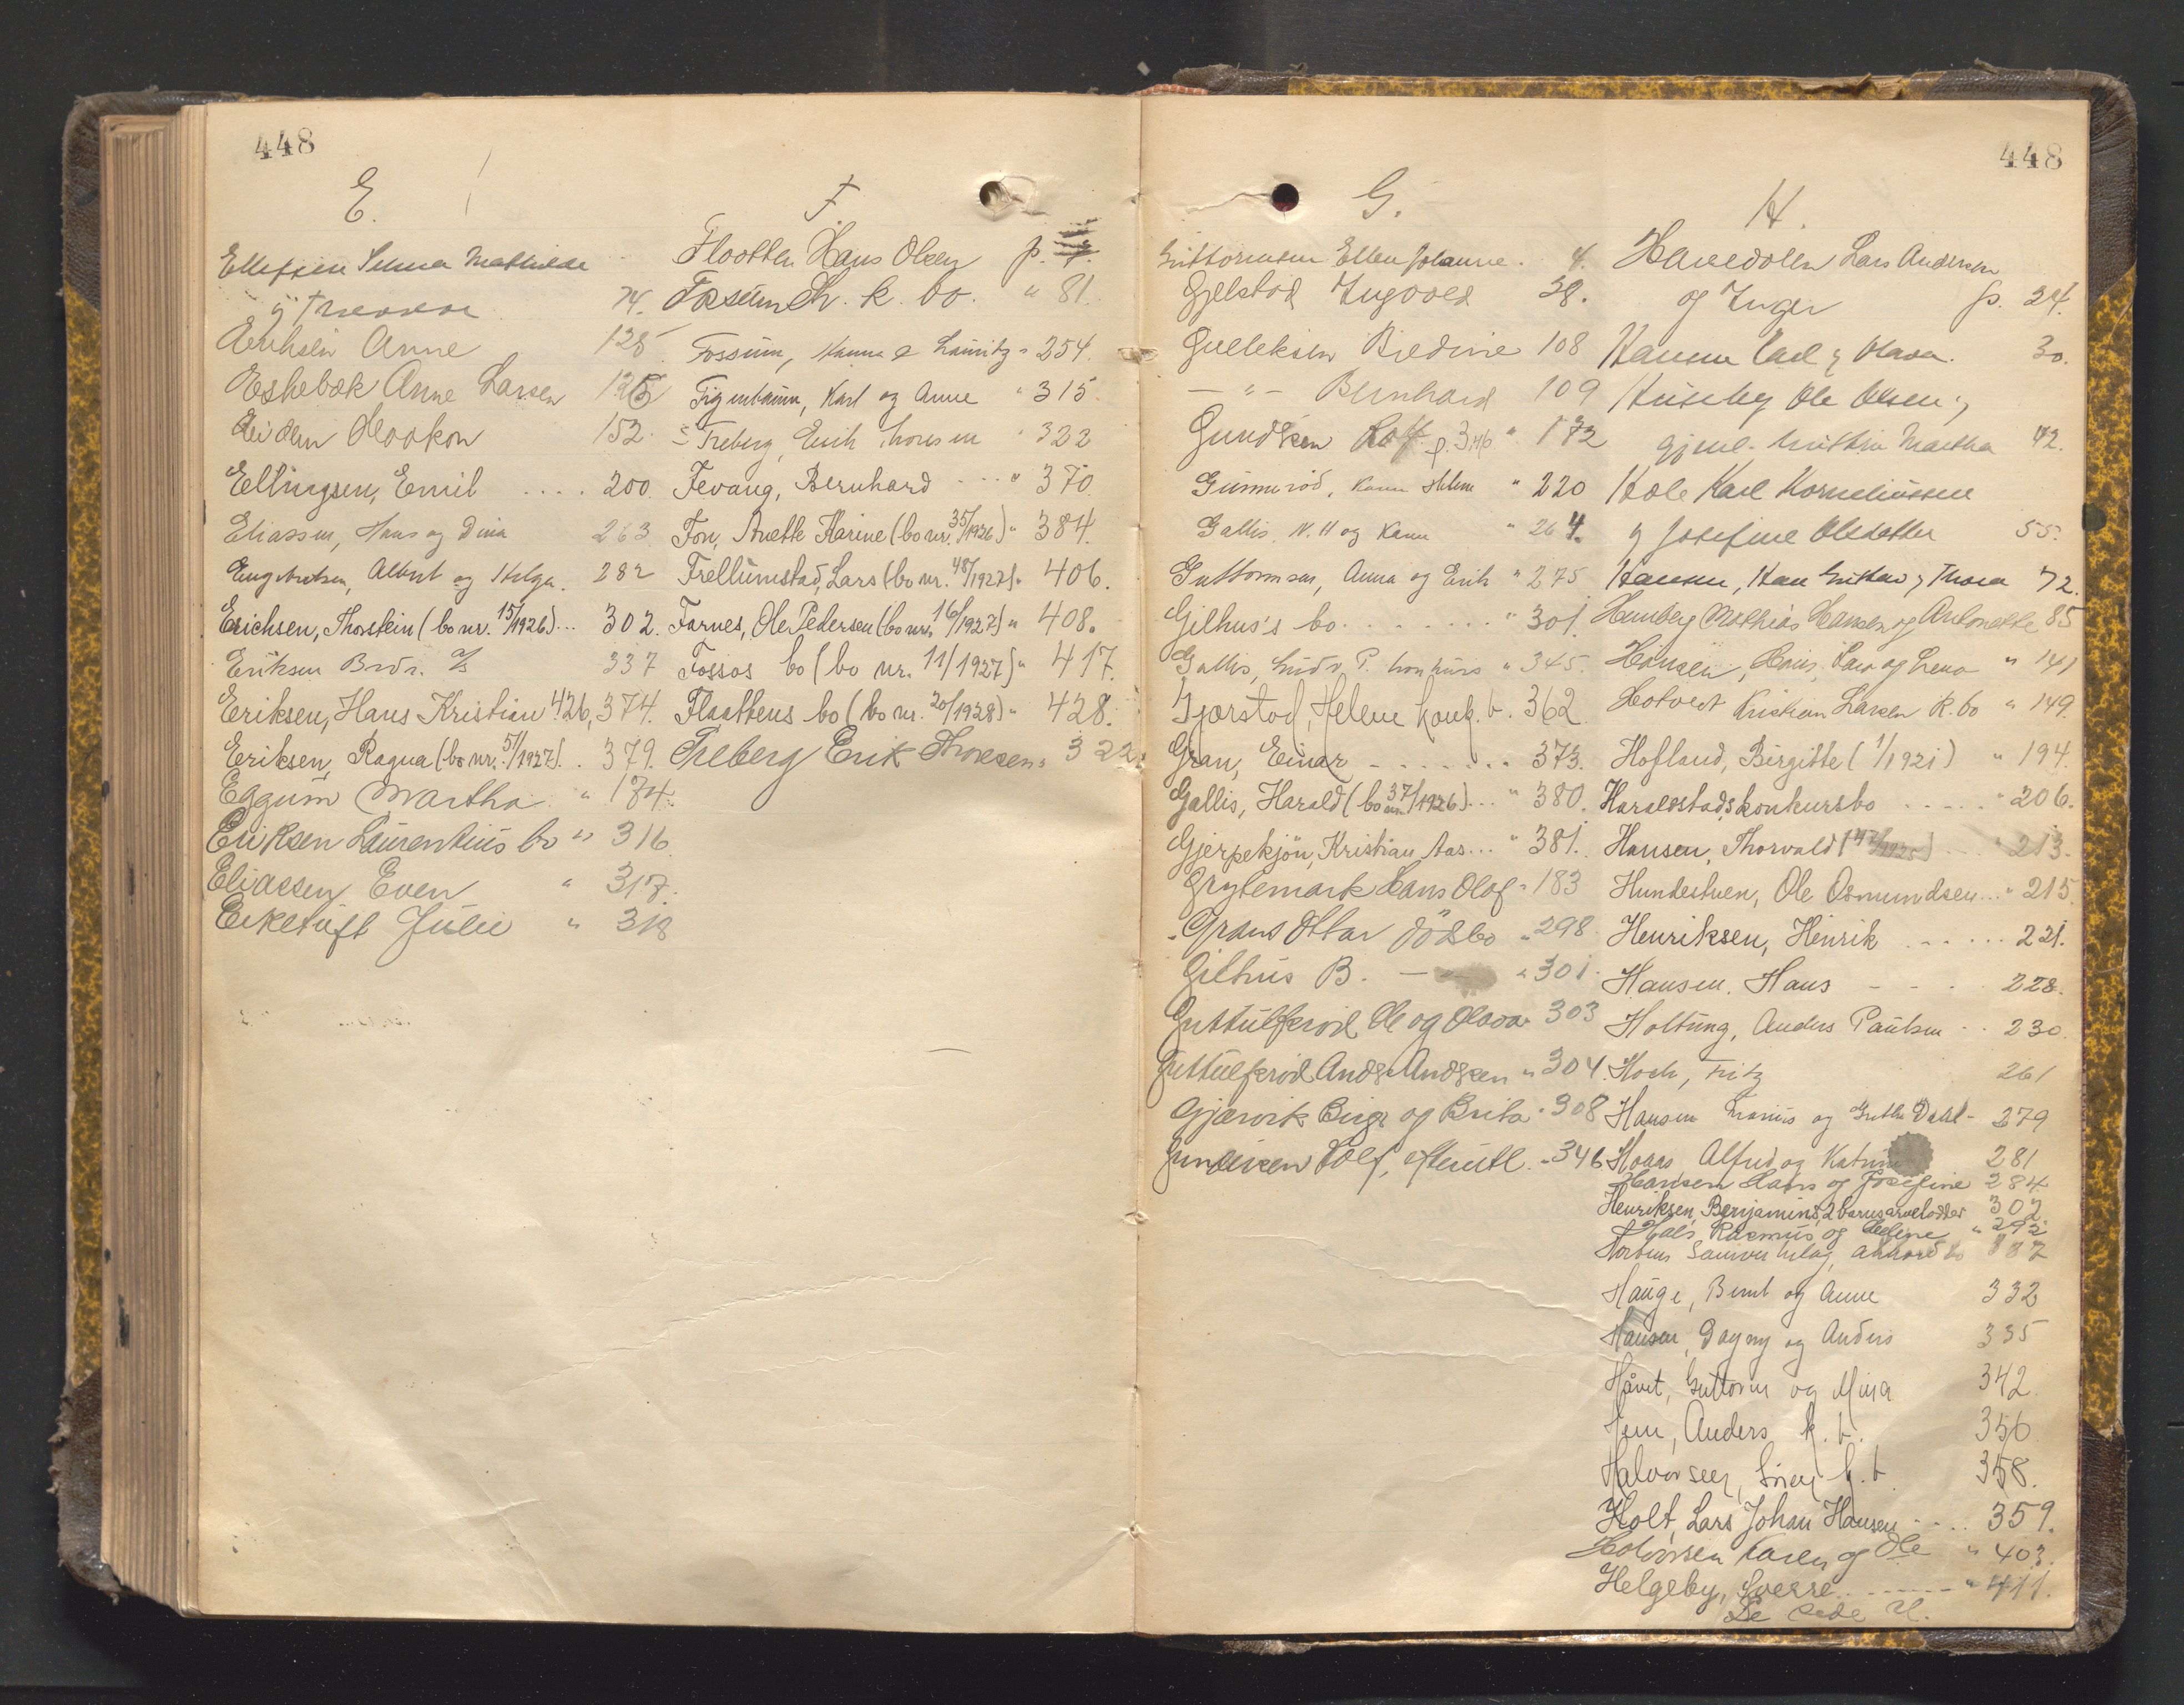 448
E.
Ellefsen Selma Mathilde
74.
Anne 125
Eskebæk Anne Larsen 126
Haakon 152.
Ellingsen, Emil .... 200.
Eliassen, Hans og Dina 263
Engebretsen, Albert og Helga. 282
Erichsen, Thorstein (bo nr. 15/1926)... 302.
Eriksen Brdr. 337
Eriksen, Hans Kristian 426, 374.
Eriksen, Ragna (bo nr. 51/1927). . 379.
Eggum Martha " 174.
Eriksen Laurentius bo " 316
Eliassen Even " 317.
Eiketuft Julie " 318
F.
Flaatten Hans Olsen p.
Fossum Chr. k. bo. " 81.
Fossum, Hanna & Lauritz " 254.
Figenbaum, Karl og Anne " 315.
Freberg, Erik Thoresen " 322
Fevang, Bernhard ... " 370.
Fon, Anette Karine (bo nr. 35/1926) " 384.
Frellumstad, Lars (bo nr. 48/1927) " 406.
Farnes, Ole Pedersen (bo nr. 16/1927) " 408.
Fossas bo (bo nr. 11/1927) " 417.
Flaattens bo (bo nr. 20/1928) " 428.
Freberg Erik Thoresen " 322.
448
G.
Guttormsen Ellen Johanne. 4.
Gjelstad Ingvald 38.
Gulliksen Bredine 108
— " — Bernhard 109
Gundersen Rolf p. 346 " 172
Gunnerød, Karen Helene " 220
Gallis, N. H og Karen " 264.
Guttormsen, Anna og Erik " 275
Gilhus's bo. . . . . . . . " 301.
Gallis, Gudv. P. konkurs " 345.
Gjærstad, Helene konk. b. 362.
Gran, Einar - . . . . . . . 373.
Gallis, Harald (bo nr. 37/1926)... " 380.
Gjerpekjøn, Kristian Aas... " 381.
Grytemark Hans Olaf " 183
Grans Ottar dødsbo " 298
Gilhus B. — " 301.
Guttulfsrød Ole og Olava " 303
Guttulfsrød Anders Andersen " 304.
Gjærvik Birger og Brita " 308
Gundersen Rolf, " 346
H.
Hanedalen Lars Andersen
og Inger p. 24.
Hansen Carl og Olava. 30.
Huseby Ole Olsen og
Martha 42.
Hole Karl Korneliussen
og Josefine Olsdatter 55.
Hansen, Hans Gustav og Thora 72.
Hemberg Mathias Hansen og Antonette 85
Hansen, Hans, Lars og Lena " 141
Hotvedt Kristian Larsen k. bo " 149.
Hofland, Birgitte (1/1921) " 194.
Haraldstads konkursbo . . . . . " 206.
Hansen, Thorvald . . " 213.
Hundestuen, Ole Osmundsen... " 215.
Henriksen, Hinrik . . . . . 221.
Hansen, Hans - - - . 228.
Holtung, Anders Paulsen . . 230.
Hoch, Fritz 261
Hansen Marius og Grethe Dahl- 279
Haaos, Alfred og Katrine 281
Hansen Hans og Josefine 284
Henriksen, Benjamins, 2 barns arvelodder 302
Hals, Rasmus og Helene " 292
Hortens Samvirkelag, akkord bo
Hauge, Bernt og Anne 332
Hansen, Dagny og Anders 335
Håvet, Guttorm og Mina 342
Hem, Anders k. b. 356
Halvorsen, Sören k. b. 358.
Holt, Lars Johan Hansen - . . . 359.
Halvorsen Karen og Ole " 403.
Helgeby, Sverre - - - - - - " 411.
Se side